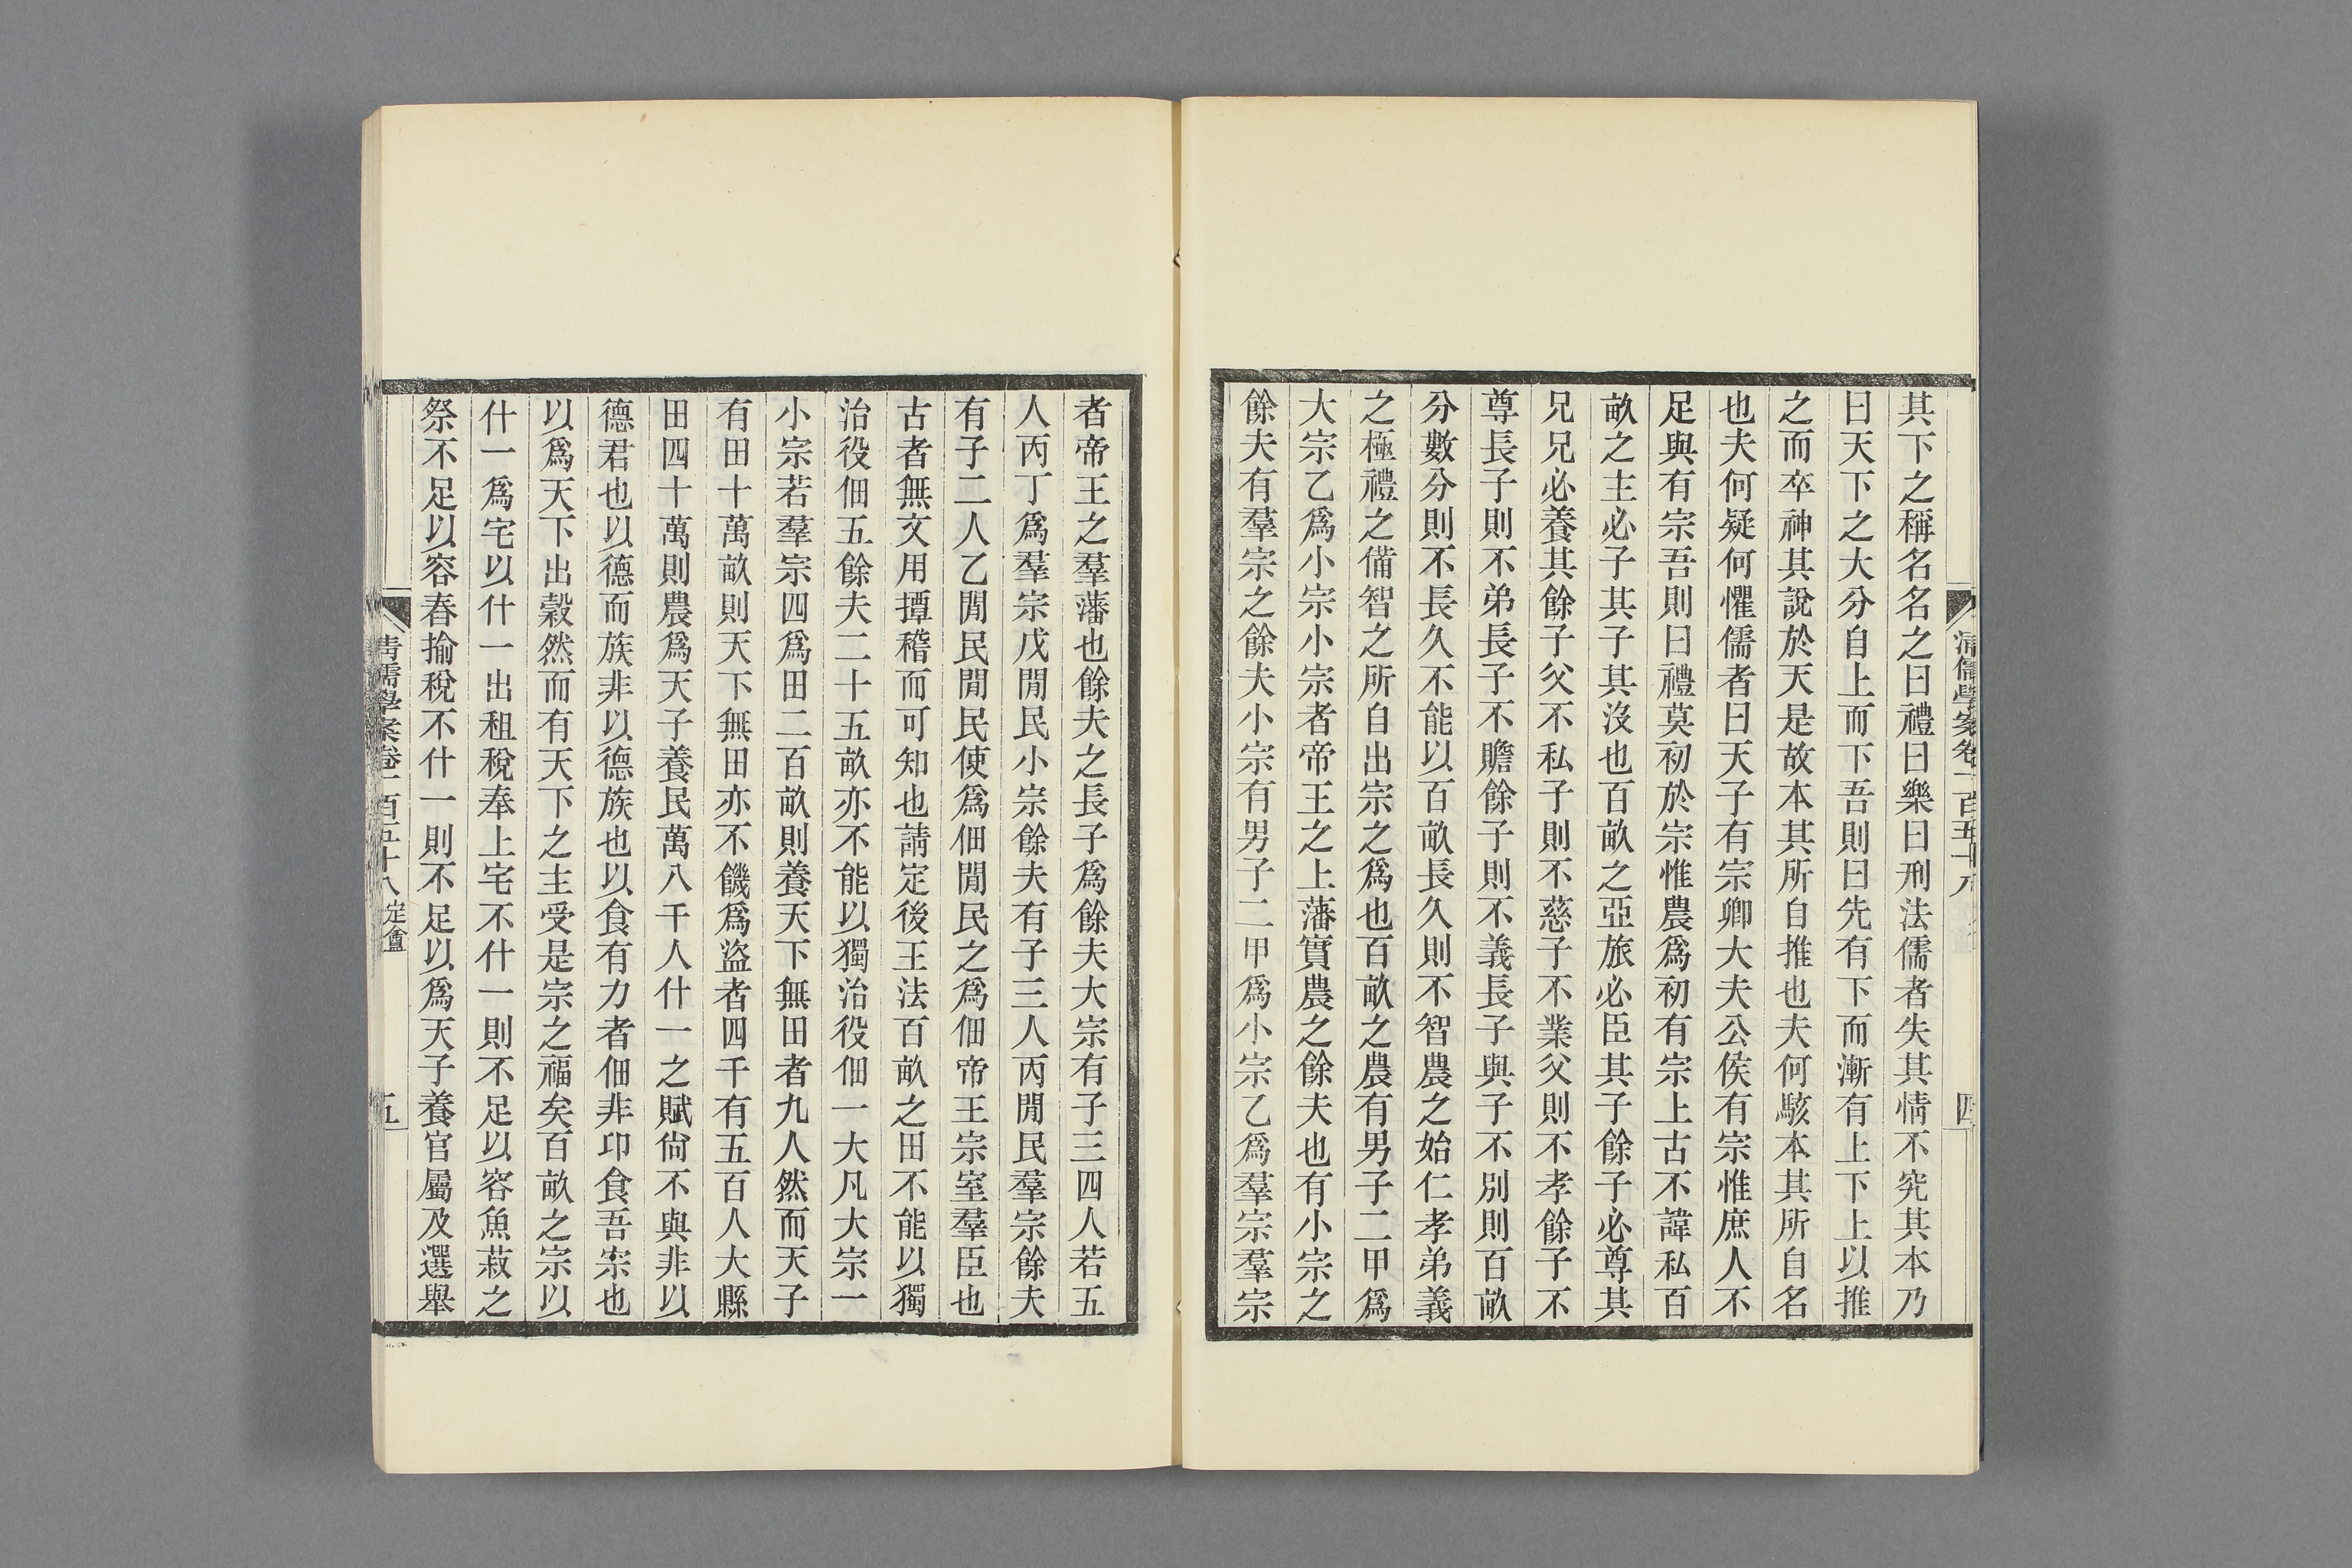 其下之稱名名之曰禮曰樂曰刑法儒者失其情不究其本乃
曰天下之大分自上而下吾則曰先有下而漸有上下上以推
之而卒神其說於天是故本其所自推也夫何駭本其所自名
也夫何疑何懼儒者曰天子有宗卿大夫公侯有宗惟庶人不
足與有宗吾則曰禮莫初於宗惟農爲初有宗上古不諱私百
畝之主必子其子其沒也百畝之亞旅必臣其子餘子必尊其
兄兄必養其餘子父不私子則不慈子不業父則不孝餘子不
尊長子則不弟長子不贍餘子則不義長子與子不別則百畝
分數分則不長久不能以百畝長久則不智農之始仁孝弟義
之極禮之備智之所自出宗之爲也百畝之農有男子二甲爲
大宗乙爲小宗小宗者帝王之上藩實農之餘夫也有小宗之
餘夫有羣宗之餘夫小宗有男子二甲爲小宗乙爲羣宗羣宗
者帝王之羣藩也餘夫之長子爲餘夫大宗有子三四人若五
人丙丁爲羣宗戊閒民小宗餘夫有子三人丙閒民羣宗餘夫
有子二人乙閒民閒民使爲佃閒民之爲佃帝王宗室羣臣也
古者無文用撢稽而可知也請定後王法百畝之田不能以獨
治役佃五餘夫二十五畝亦不能以獨治役佃一大凡大宗一
小宗若羣宗四爲田二百畝則養天下無田者九人然而天子
有田十萬畝則天下無田亦不饑爲盜者四千有五百人大縣
田四十萬則農爲天子養民萬八千人什一之賦尙不與非以
德君也以德而族非以德族也以食有力者佃非卬食吾宗也
以爲天下出穀然而有天下之主受是宗之福矣百畝之宗以
什一爲宅以什一出租稅奉上宅不什一則不足以容魚菽之
祭不足以容春揄稅不什一則不足以爲天子養官屬及選舉
清儒學案卷一百五十八 定盦
五